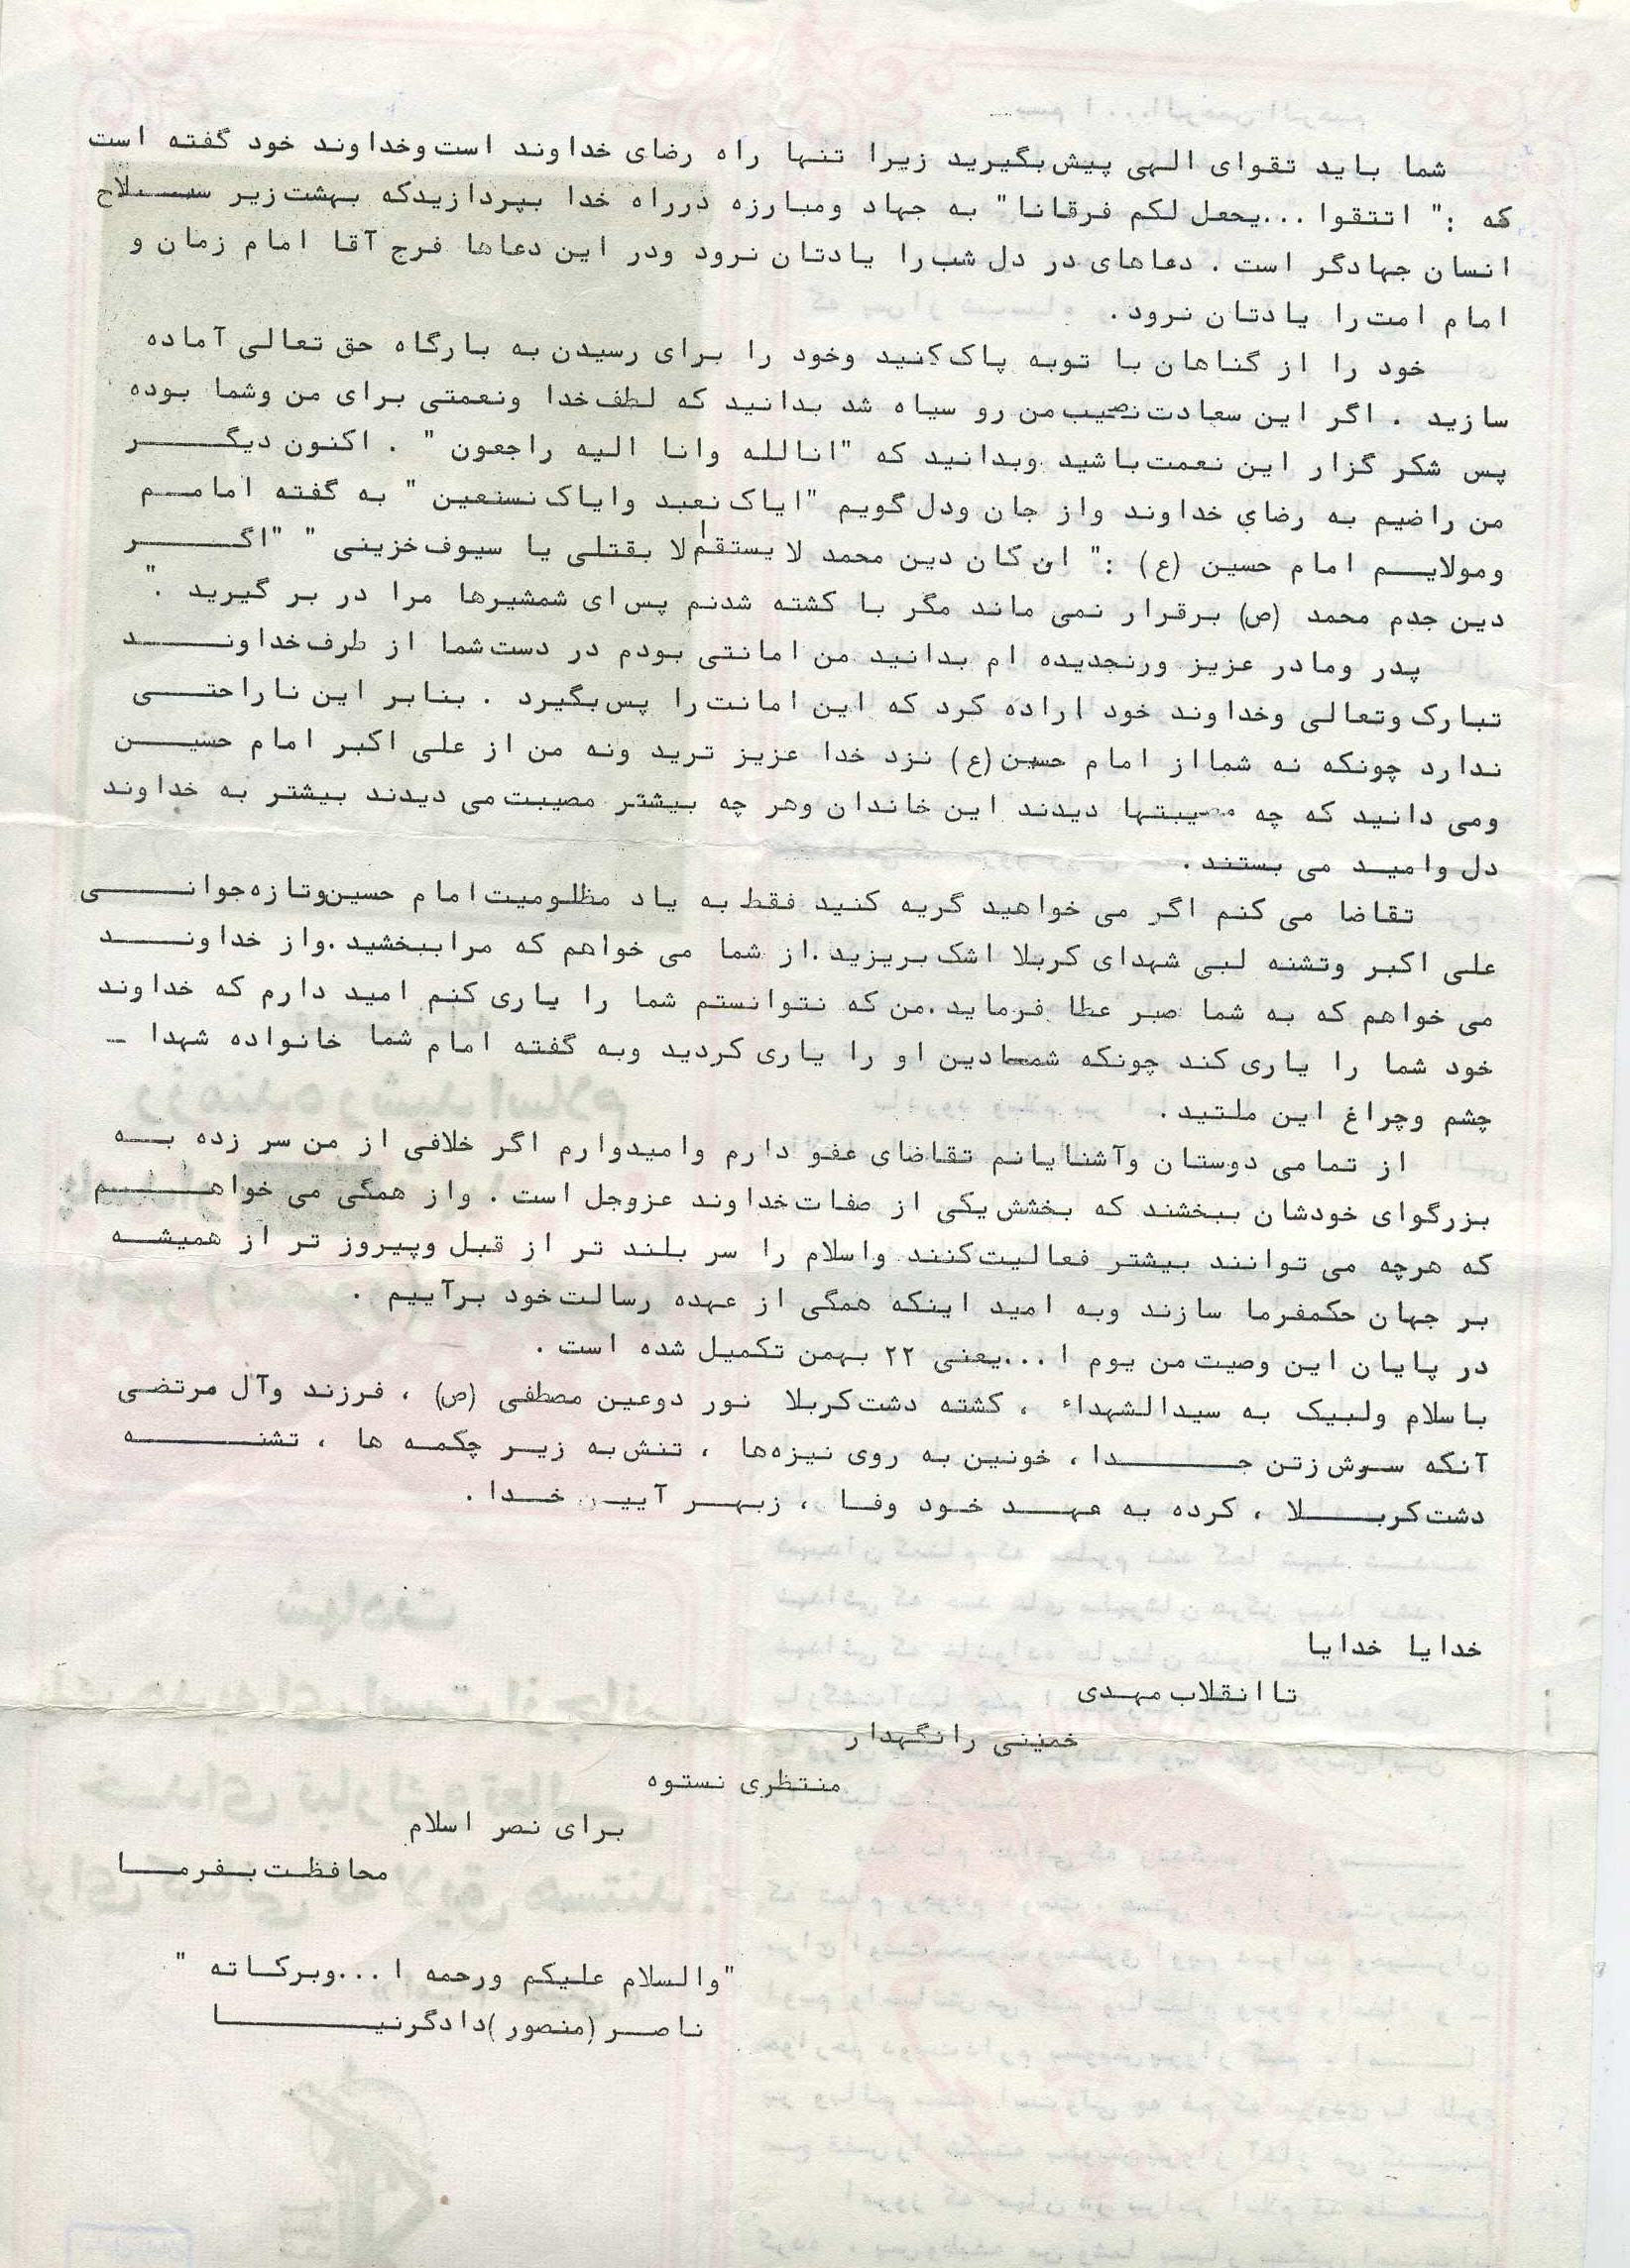 شما باید تقوای الهی پیش بگیرید زیرا تنها راه رضای خداوند است وخداوند خود گفته است
که :" اتتقوا ...یحعل لکم فرقانا" به جهاد ومبارزه درراه خدا بپردازیدکه بهشت زیر سلاح
انسان جهادگر است . دعاهای در دل شب را یادتان نرود ودر این دعاها فرج آقا امام زمان و
امام امت را یادتان نرود .
خود را از گناهان با توبه پاک کنید وخود را برای رسیدن به بارگاه حق تعالی آماده
سازید . اگر این سعادت نصیب من رو سیاه شد بدانید که لطف خدا ونعمتی برای من وشما بوده
پس شکر گزار این نعمت باشید وبدانید که "انالله وانا الیه راجعون " . اکنون دیگر
من راضیم به رضای خداوند واز جان ودل گویم "ایاک نعبد وایاک نستعین " به گفته امامم
ومولایم امام حسین (ع) :" ان کان دین محمد لا یستقم الا بقتلی یا سیوف خزینی " "اگر
دین جدم محمد (ص) برقرار نمی ماند مگر با کشته شدنم پس ای شمشیرها مرا در بر گیرید ."
پدر ومادر عزیز ورنجدیده ام بدانید من امانتی بودم در دست شما از طرف خداوند
تبارک وتعالی وخداوند خود اراده کرد که این امانت را پس بگیرد . بنابر این ناراحتی
ندارد چونکه نه شمااز امام حسین (ع) نزد خدا عزیز ترید ونه من از علی اکبر امام حسین
ومی دانید که چه مصیبتها دیدند این خاندان وهر چه بیشتر مصیبت می دیدند بیشتر به خداوند
دل وامید می بستند .
تقاضا می کنم اگر می خواهید گریه کنید فقط به یاد مظلومیت امام حسین وتازه جوانی
علی اکبر وتشنه لبی شهدای کربلا اشک بریزید .از شما می خواهم که مراببخشید .واز خداوند
می خواهم که به شما صبر عطا فرماید .من که نتوانستم شما را یاری کنم امید دارم که خداوند
خود شما را یاری کند چونکه شما دین او را یاری کردید وبه گفته امام شما خانواده شهدا -
چشم وچراغ این ملتید .
از تمامی دوستان وآشنایانم تقاضای عفو دارم وامیدوارم اگر خلافی از من سر زده به
بزرگوای خودشان ببخشند که بخشش یکی از صفات خداوند عزوجل است . واز همگی می خواهم
که هرچه می توانند بیشتر فعالیت کنند واسلام را سر بلند تر از قبل وپیروز تر از همیشه
بر جهان حکمفرما سازند وبه امید اینکه همگی از عهده رسالت خود برآییم .
در پایان این وصیت من یوم ا...یعنی ۲۲ بهمن تکمیل شده است .
باسلام ولبیک به سیدالشهداء ، کشته دشت کربلا نور دوعین مصطفی (ص) ، فرزند وآل مرتضی
آنکه سرش زتن جدا ، خونین به روی نیزه ها ، تنش به زیر چکمه ها ، تشنه
دشت کربلا ، کرده به عهد خود وفا ، زبهر آیین خدا .
خدایا خدایا
تاانقلاب مهدی
خمینی رانگهدار
منتظری نستوه
برای نصر اسلام
محافظت بفرما
"والسلام علیکم ورحمه ا...وبرکاته "
ناصر (منصور)دادگرنیا